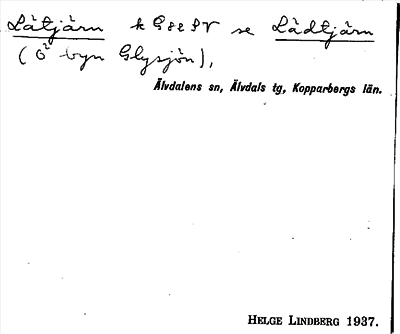 Låtjärn k 5882 NV se Lådtjärn
(Ö² byn Glysjön),
Älvdalens sn, Älvdals tg, Kopparbergs län.
HELGE LINDBERG 1937.